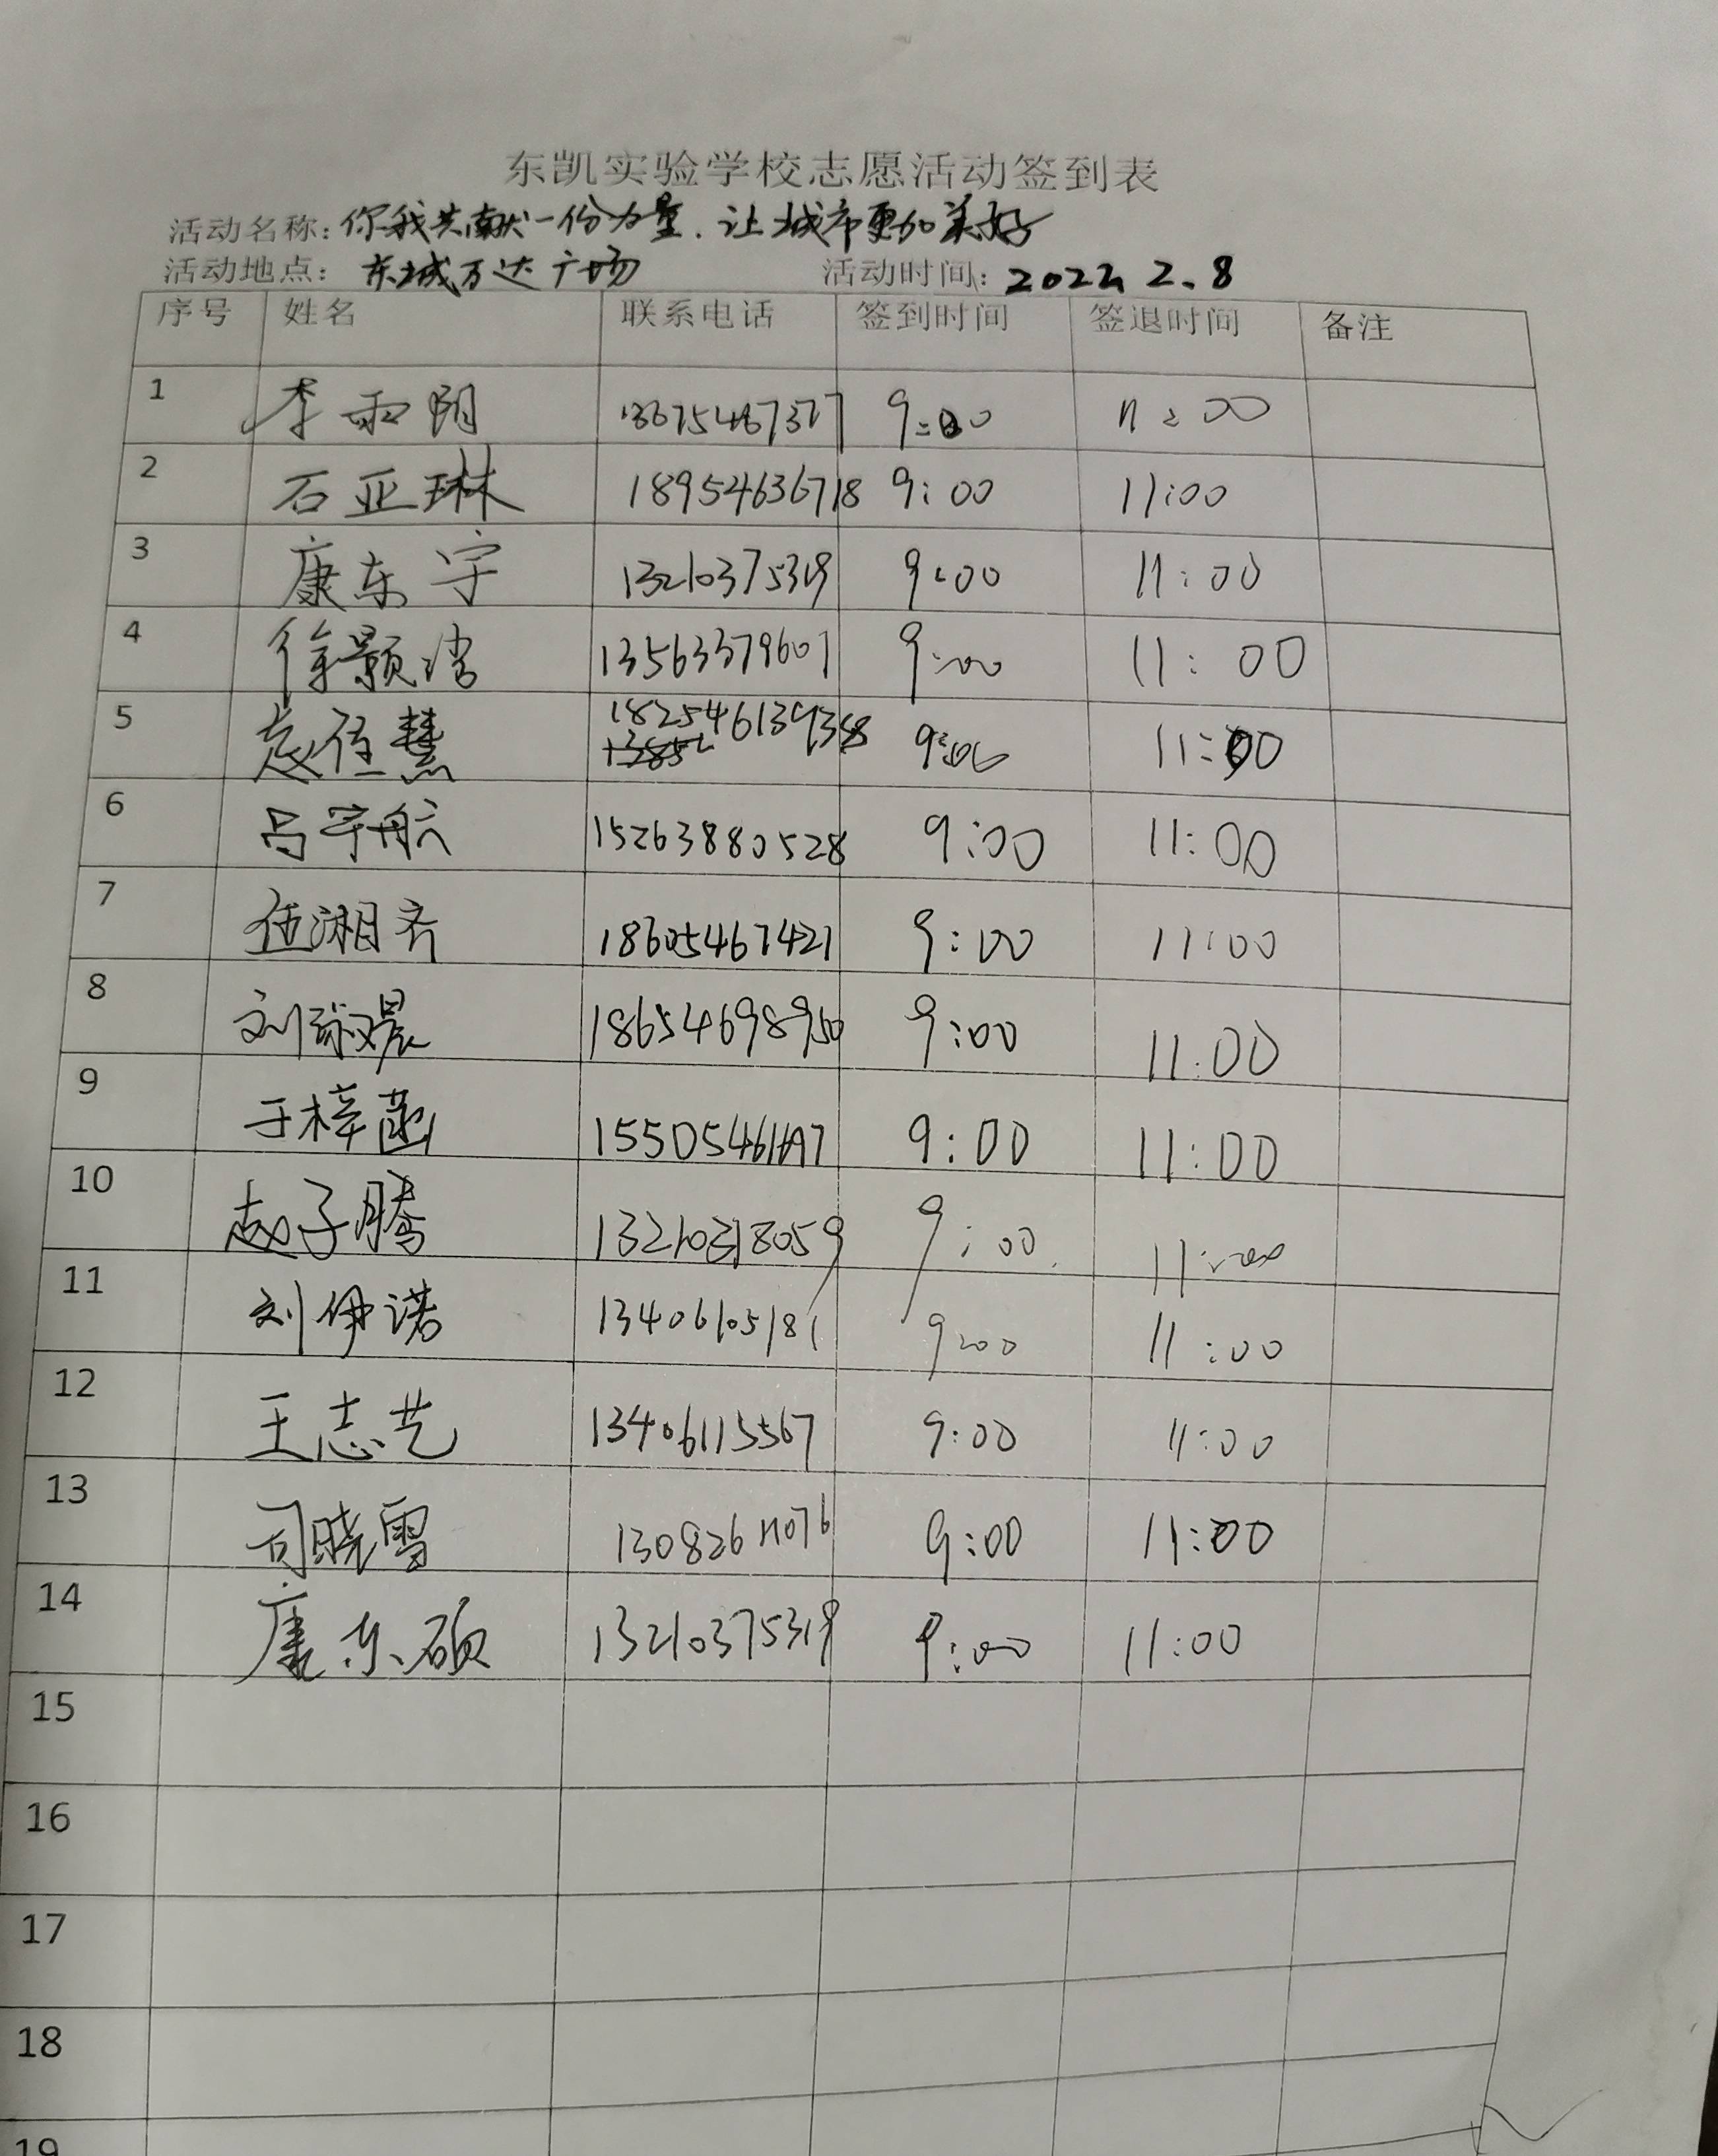 东凯实验学校志愿活动签到表
活动名称:你我共献一份力量.让城市更加美好
活动地点: 东城万达广场 活动时间: 2022.2.8
序号 姓名 联系电话 签到时间 签退时间 备注
1 李雨阴 9:00 11:00
2 石亚琳 18954636718 9:00 11:00
3 康东宇 13210375319 9:00 11:00
4 徐颢洁 13563379607 9:00 11:00
5 18254613938 9:00 11:00
6 吕宇航 15263880528 9:00 11:00
7 伍湘齐 18605467421 9:00 11:00
8 18654698950 9:00 11:00
9 于梓菡 9:00 11:00
10 赵子腾 9:00 11:00
11 刘伊诺 13406105181 9:00 11:00
12 王志艺 13406115567 9:00 11:00
13 司晓雪 9:00 11:00
14 康东硕 13210375319 9:00 11:00
15
16
17
18
19